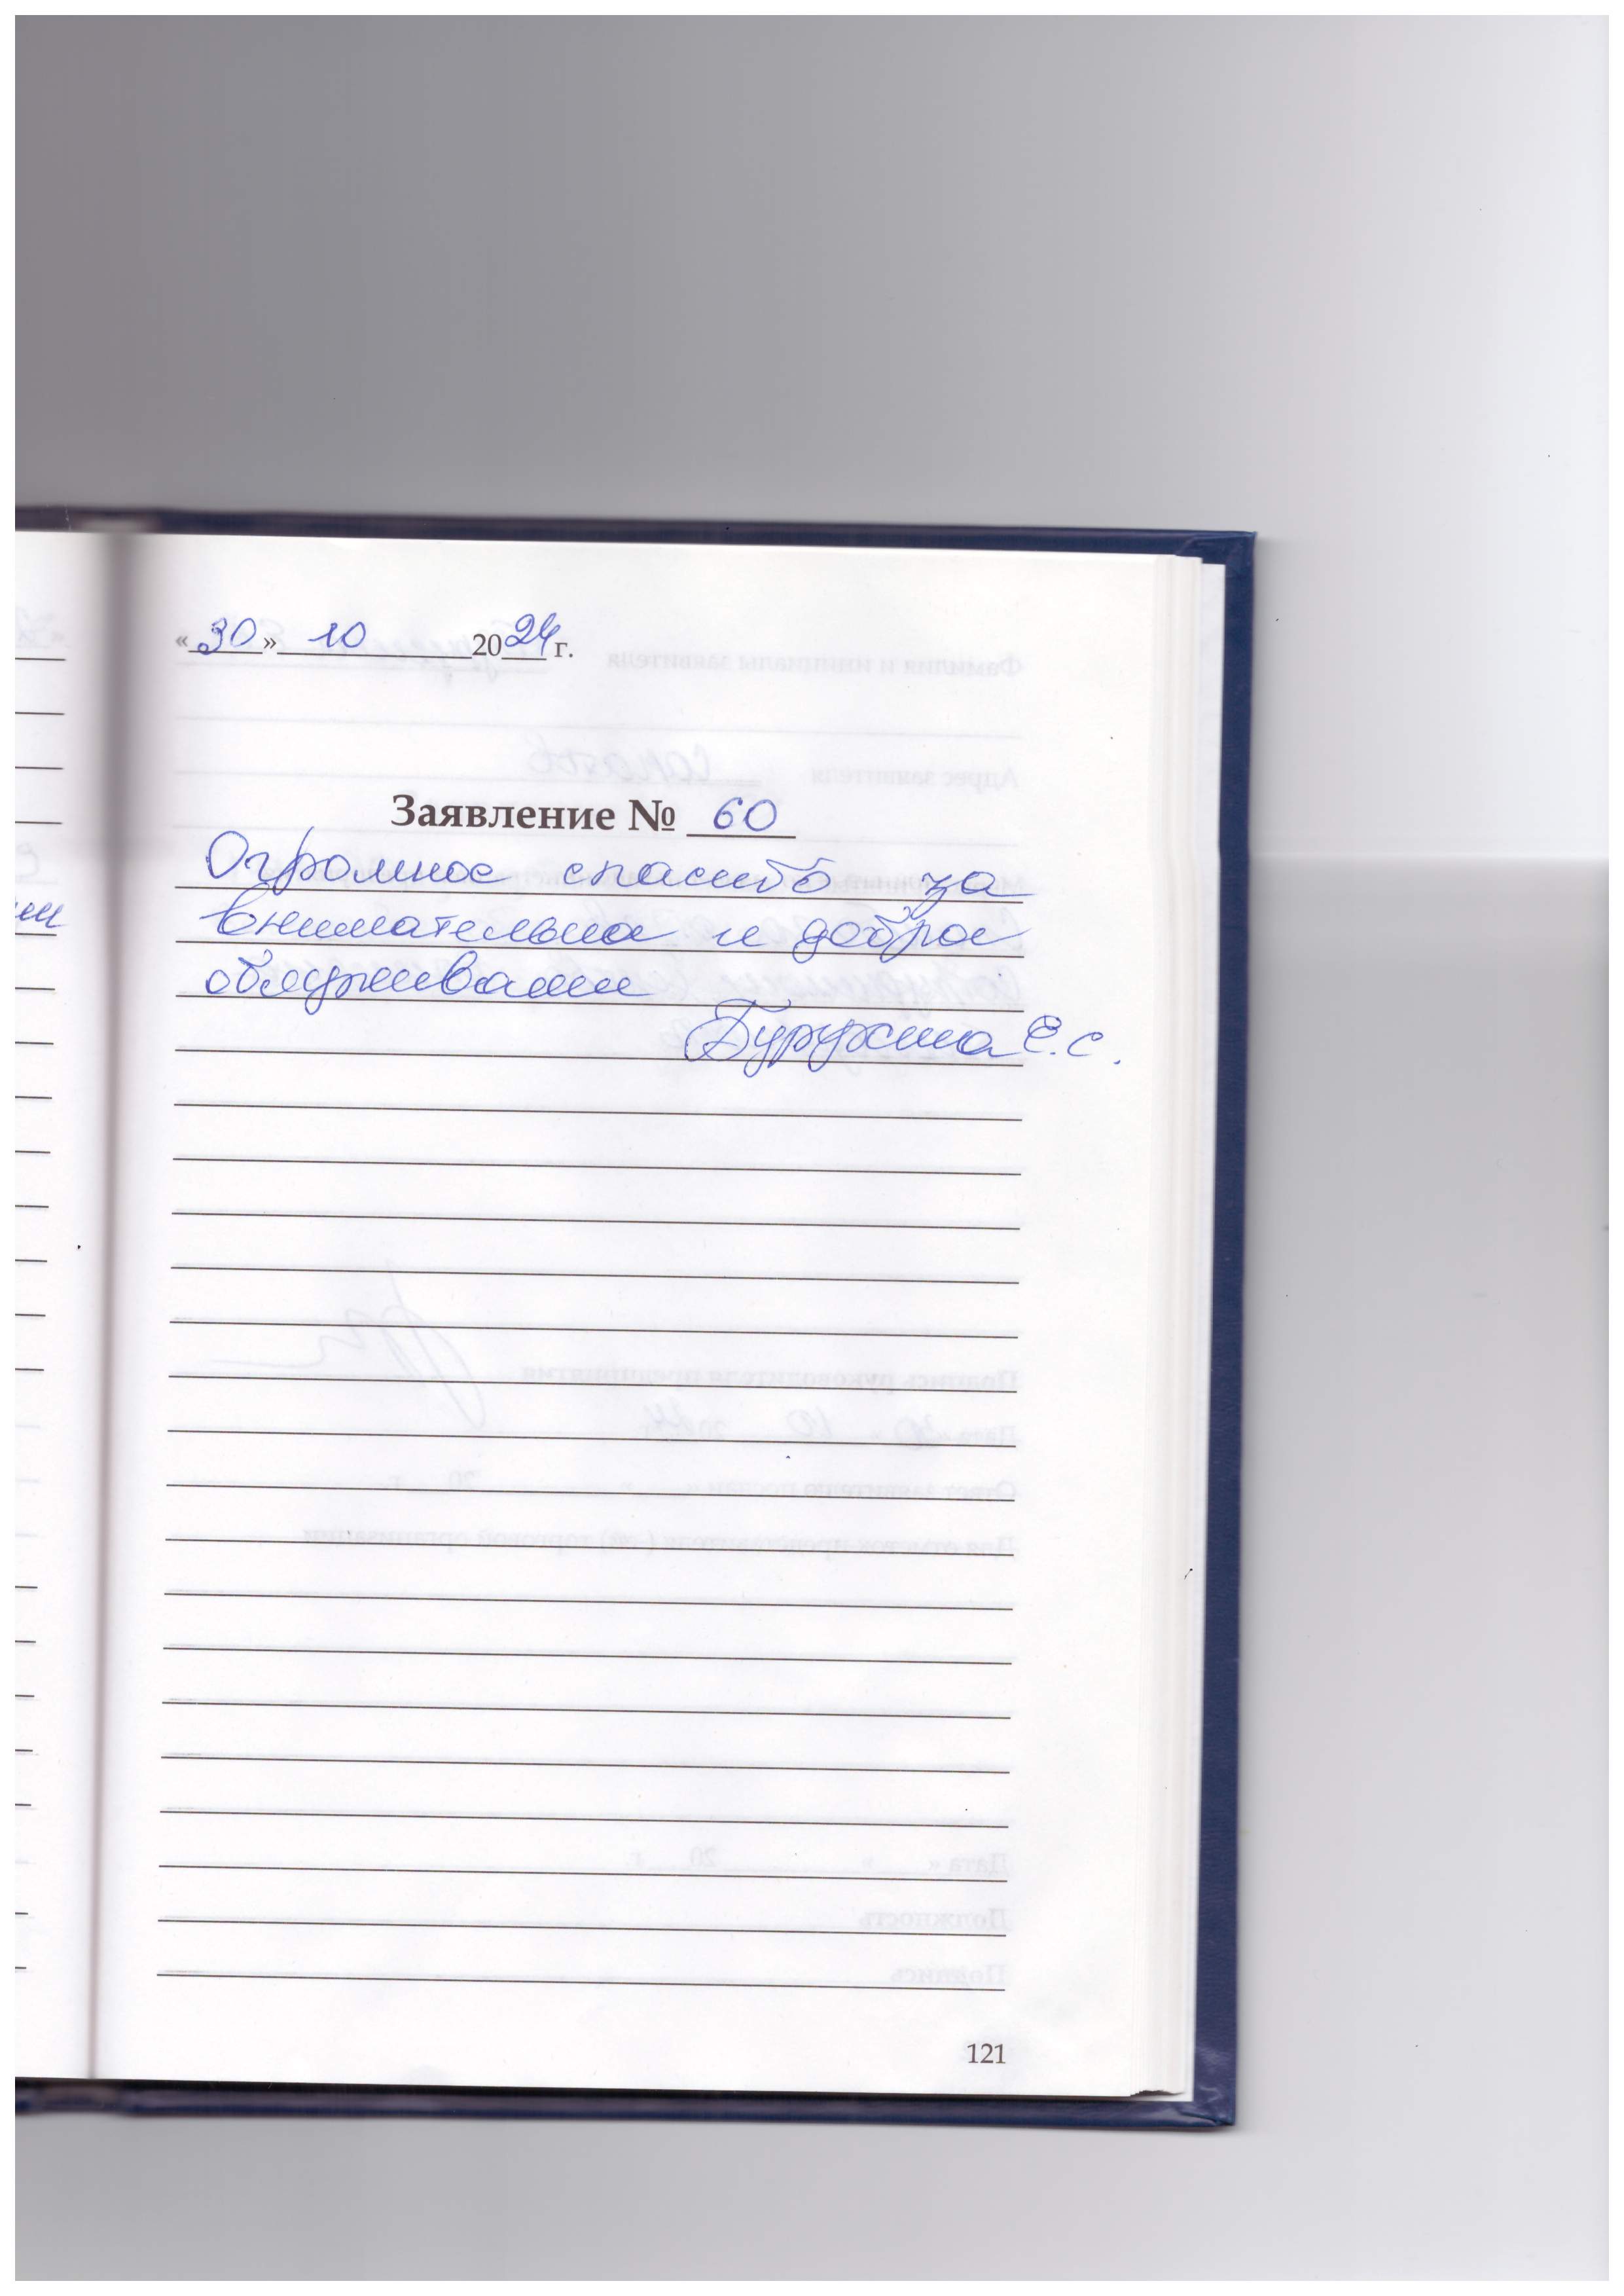 «30» 10 2024 г.
Заявление № 60
Огромное спасибо за
внимательна и доброе
обслуживании
Е.С.
121